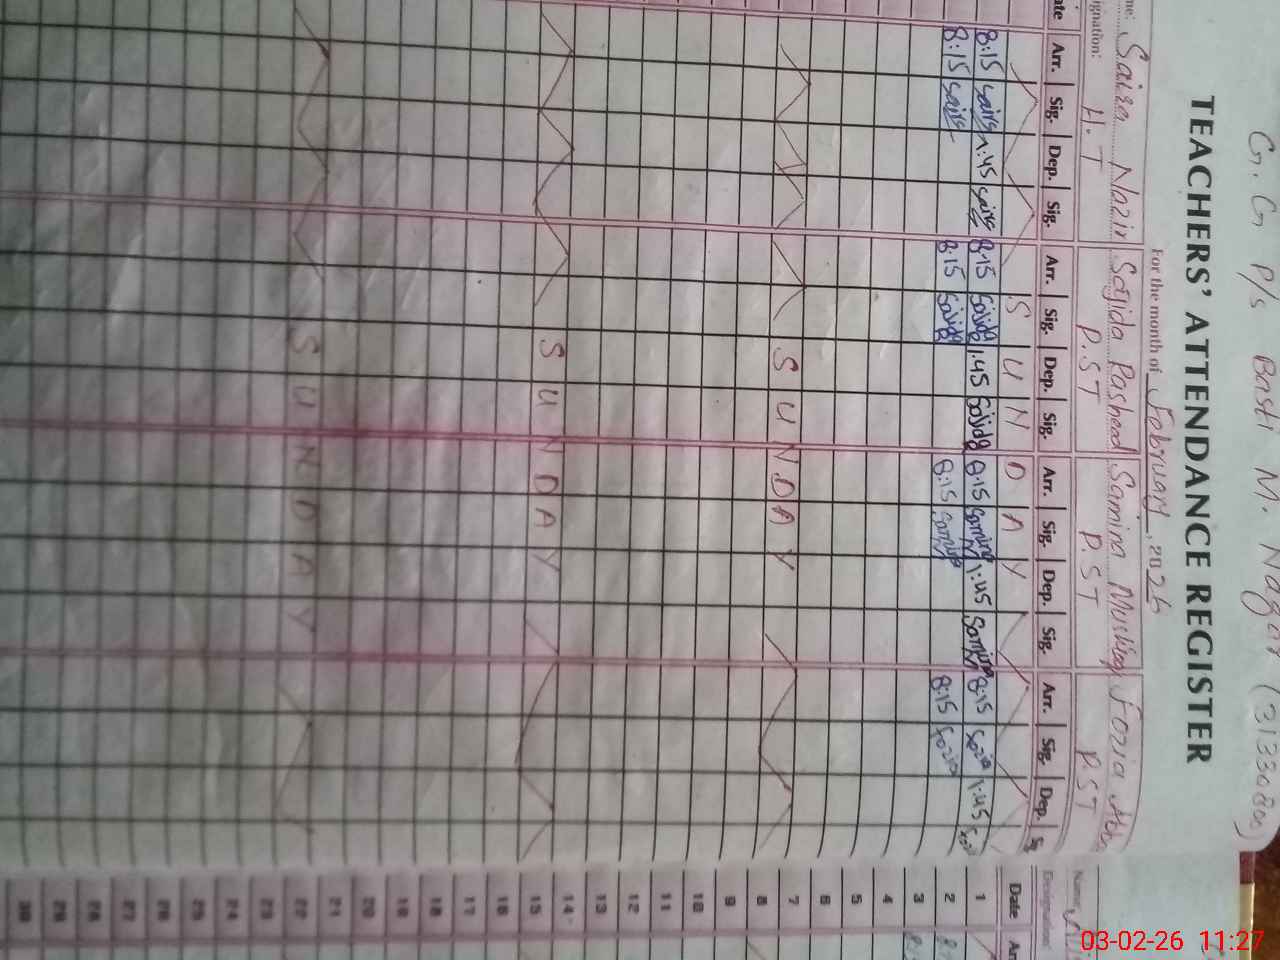 G. G P/s Basti M. Nagar (31330800)
TEACHERS' ATTENDANCE REGISTER
For the month of February, 2026
me: Saira Nazir Sajida Rasheed Samina Mushtaq Fozia
ignation: H.T P.ST P.ST P.ST
ate Arr. Sig. Dep. Sig. Arr. Sig. Dep. Sig. Arr. Sig. Dep. Sig. Arr. Sig. Dep. S
S U N D A Y
8:15 Saira 1:45 Saira 8:15 Sajida 1:45 Sajida 8:15 Samina 1:45 Samina 8:15 Fozia 1:45
8:15 Saira 8:15 Sajida 8:15 Samina 8:15 Fozia
S U N D A Y
S U N D A Y
S U N D A Y
Name
Designation
Date Ar
1
2
3
4
5
6
7
8
9
10
11
12
13
14
15
16
17
18
19
20
21
22
23
24
25
26
27
28
29
30
03-02-26 11:27